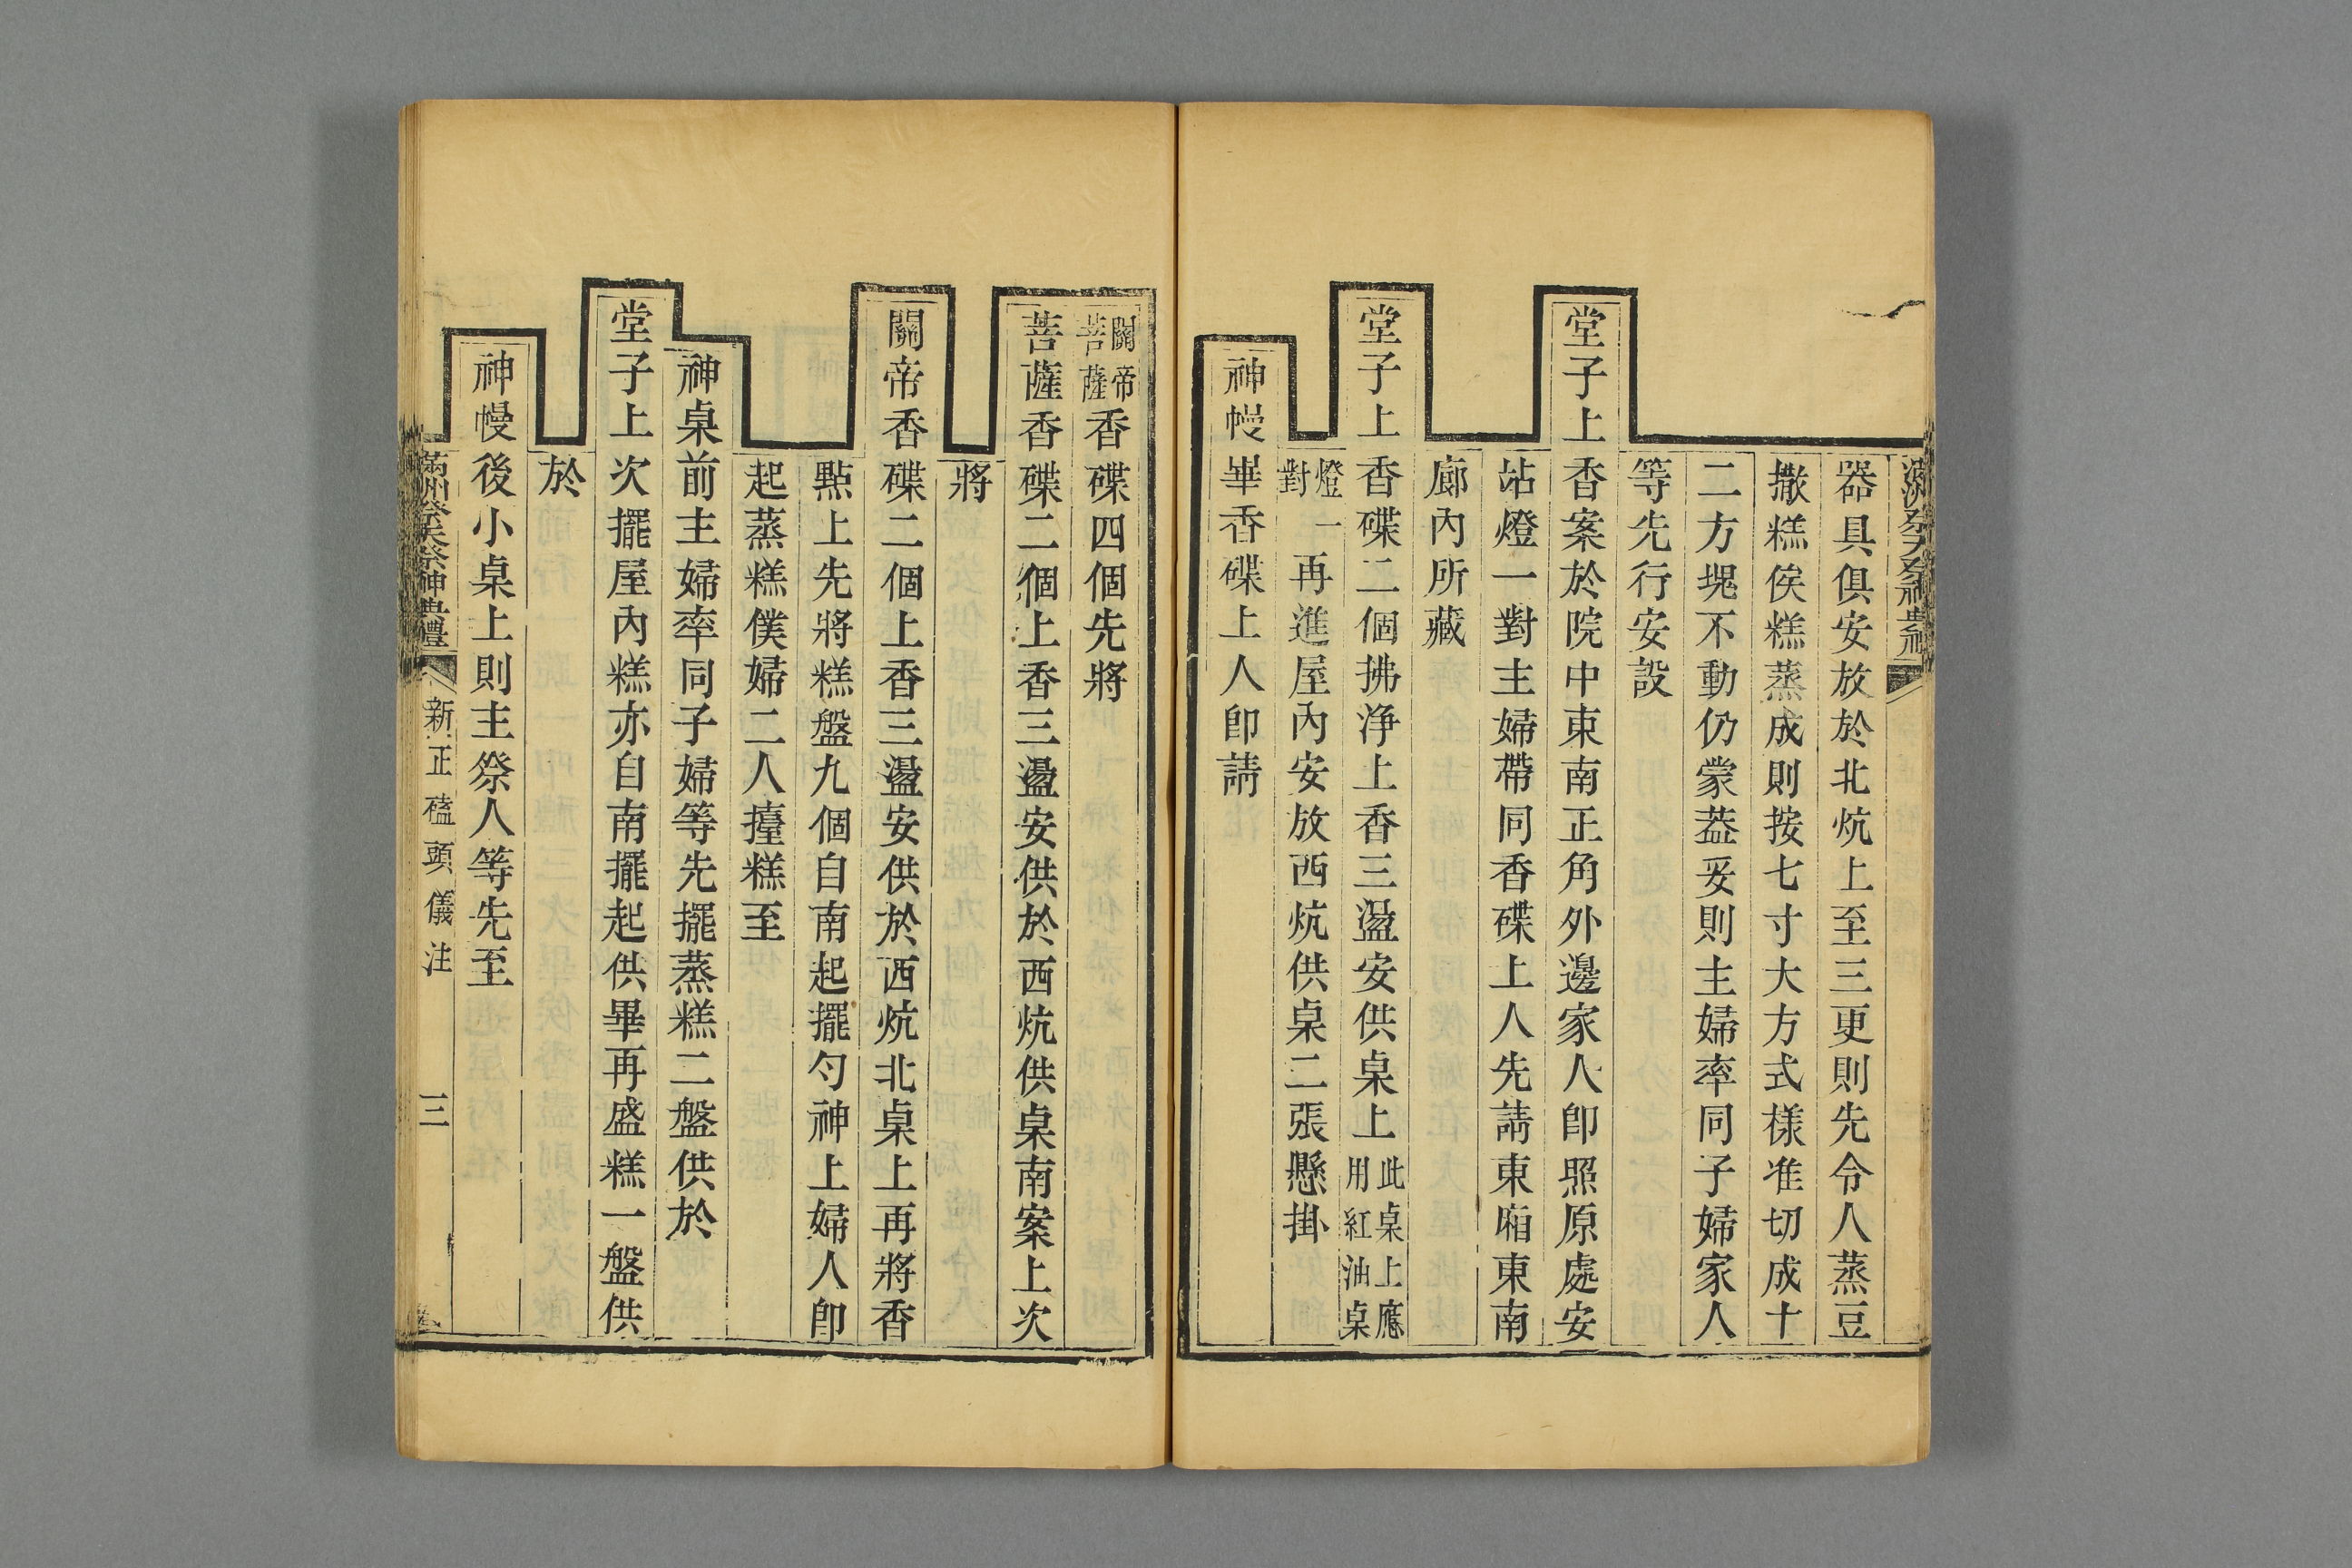 器具俱安放於北炕上至三更則先令人蒸豆
撒糕俟糕蒸成則按七寸大方式樣准切成十
二方塊不動仍蒙蓋妥則主婦率同子婦家人
等先行安設
堂子上香案於院中東南正角外邊家人卽照原處安
站燈一對主婦帶同香碟上人先請東廂東南
廊內所藏
堂子上香碟二個拂淨上香三盪安供桌上此桌上應用紅油桌
燈一對再進屋內安放西炕供桌二張懸掛
神幔畢香碟上人卽請
關帝菩薩香碟四個先將
菩薩香碟二個上香三盪安供於西炕供桌南案上次
將
關帝香碟二個上香三盪安供於西炕北桌上再將香
㸃上先將糕盤九個自南起擺勺神上婦人卽
起蒸糕僕婦二人擡糕至
神桌前主婦率同子婦等先擺蒸糕二盤供於
堂子上次擺屋內糕亦自南擺起供畢再盛糕一盤供
於
神幔後小桌上則主祭人等先至
滿洲祭天祭神典禮 新正磕頭儀注 三